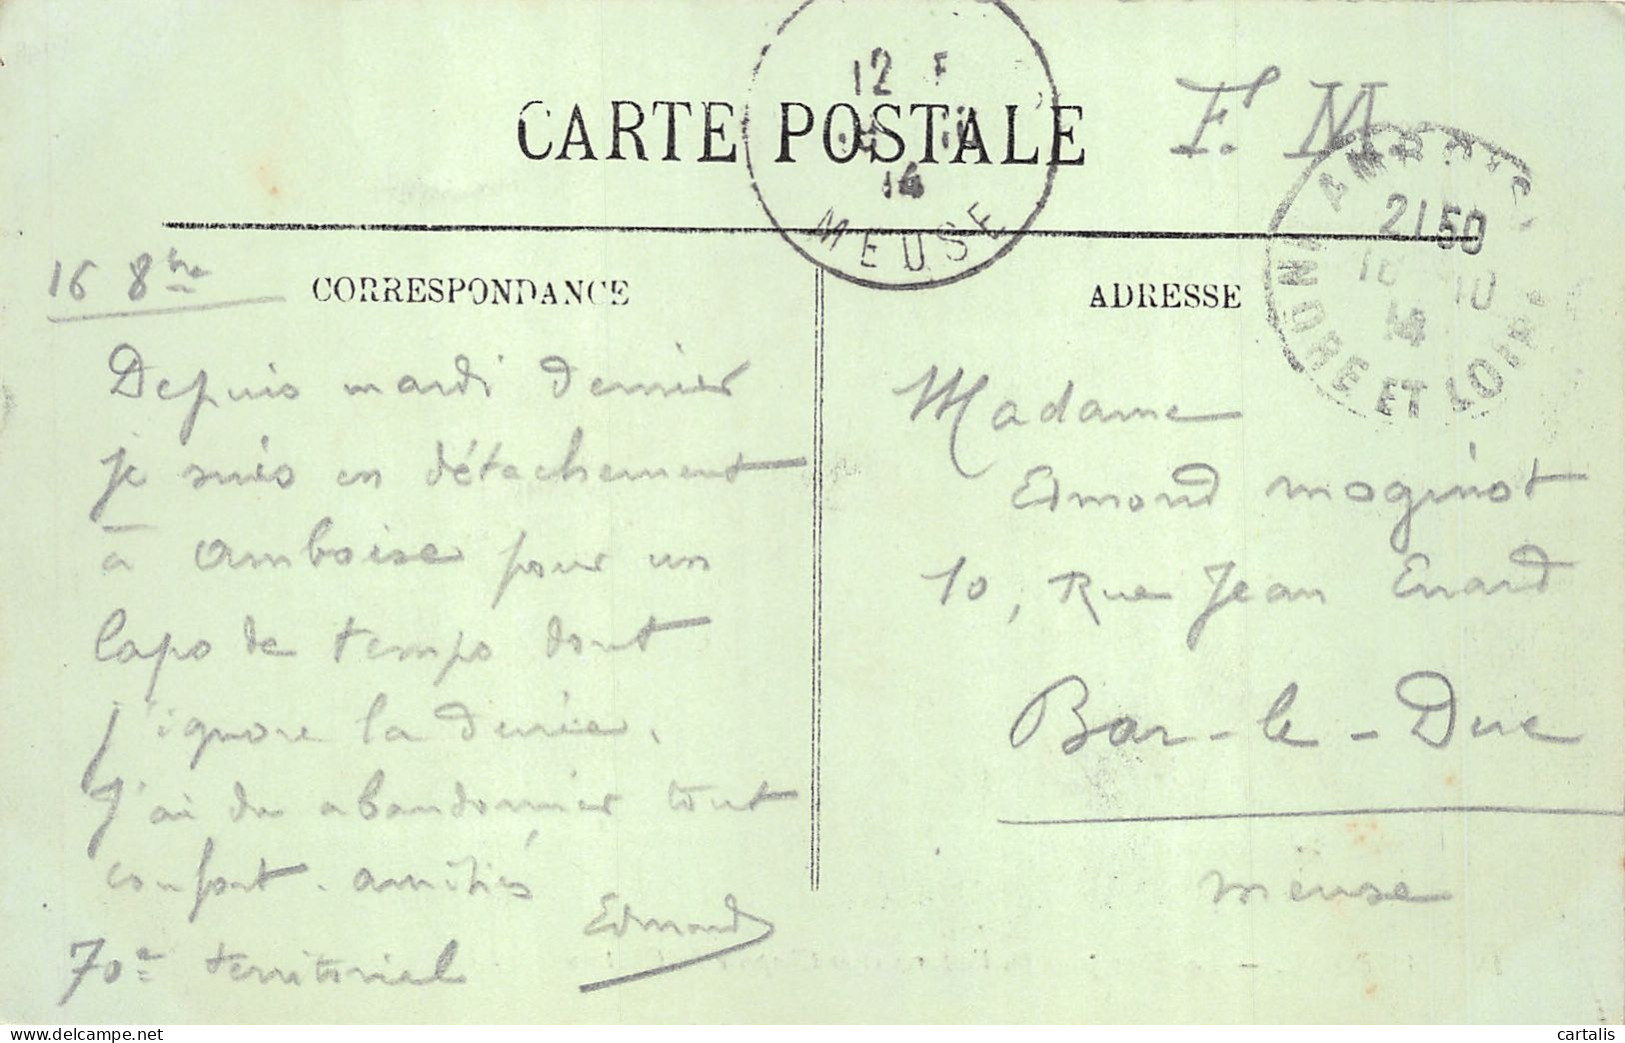 CARTE POSTALE
F. M.
12 F
14
MEUSE
AMBOISE
2150
16 -10
14
INDRE ET LOIRE
16 8bre
CORRESPONDANCE
Depuis mardi dernier
je suis en détachement
à Amboise pour un
laps de temps dont
j'ignore la durée.
J'ai du abandonner tout
confort. amitiés
Edmond
70e territorial
ADRESSE
Madame
Edmond Moginot
10, Rue Jean Errard
Bar-le-Duc
Meuse
cartalis